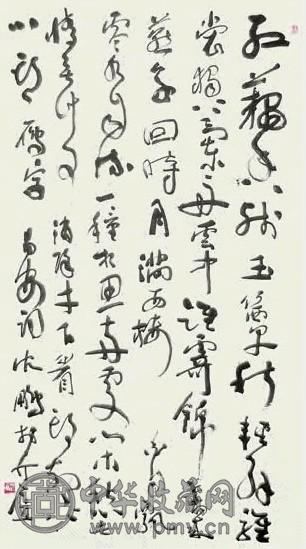 红藕香残玉簟秋轻解罗
裳独上兰舟云中谁寄锦书来
雁字回时月满西楼花自飘
零水自流一种相思两处闲愁此
情无计可消除才下眉头却上
心头雁字易安词沈鹏
中华收藏网
www.pmv.cn